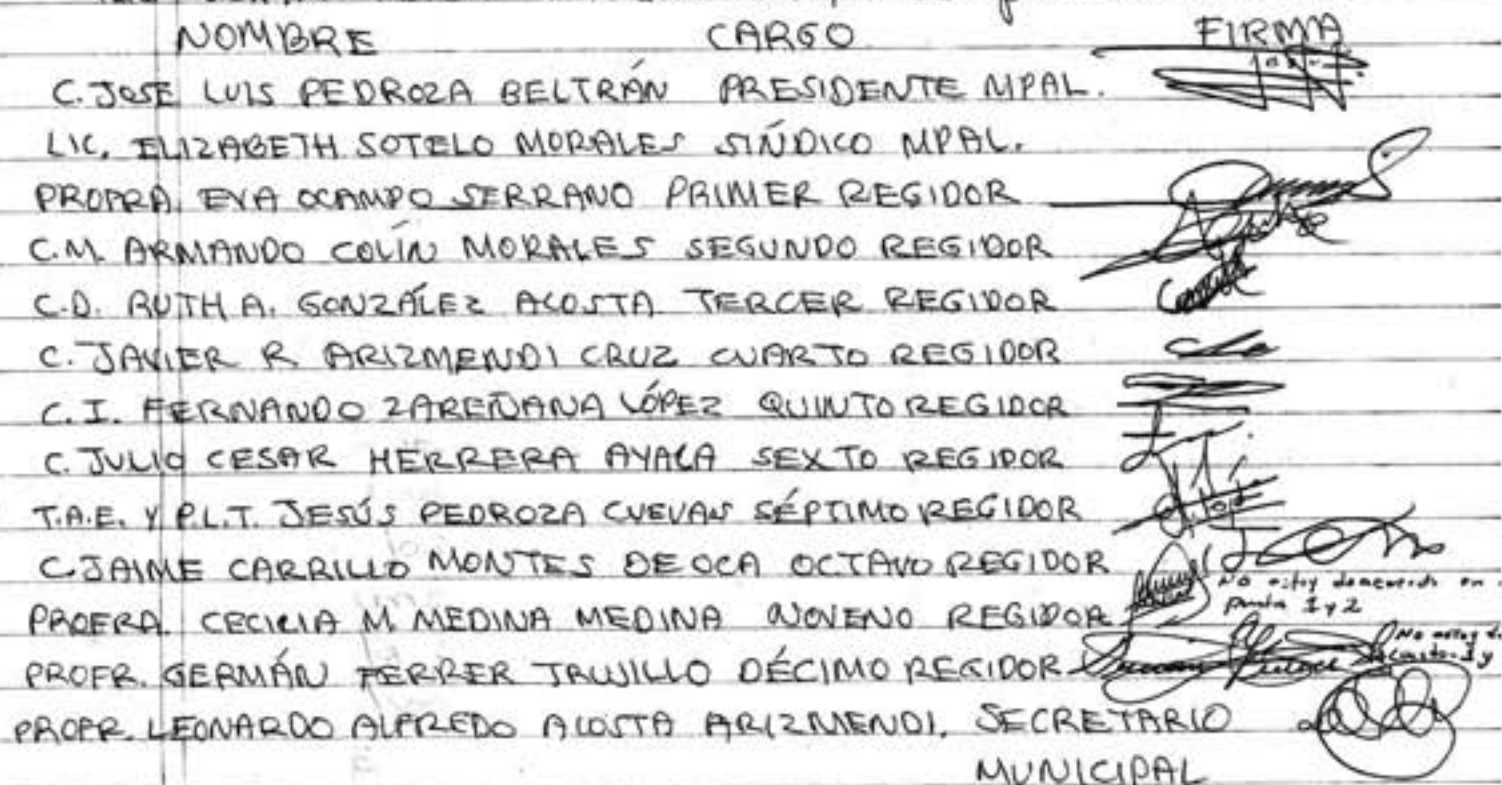 NOMBRE CARGO FIRMA
C. JOSE LUIS PEDROZA BELTRÁN PRESIDENTE MPAL.
LIC. ELIZABETH SOTELO MORALES SÍNDICO MPAL.
PROFRA. EVA OCAMPO SERRANO PRIMER REGIDOR
C.M. ARMANDO COLÍN MORALES SEGUNDO REGIDOR
C.D. RUTH A. GONZÁLEZ ACOSTA TERCER REGIDOR
C. JAVIER R ARIZMENDI CRUZ CUARTO REGIDOR
C.I. FERNANDO ZAREÑANA LÓPEZ QUINTO REGIDOR
C. JULIO CESAR HERRERA AYALA SEXTO REGIDOR
T.A.E. Y P.L.T. JESÚS PEDROZA CUEVAS SÉPTIMO REGIDOR
C. JAIME CARRILLO MONTES DE OCA OCTAVO REGIDOR
No estoy deacuerdo en
punto 1 y 2
PROFRA. CECILIA M. MEDINA MEDINA NOVENO REGIDOR
No estoy
PROFR. GERMÁN FERRER TRUJILLO DÉCIMO REGIDOR
PROFR. LEONARDO ALFREDO ACOSTA ARIZMENDI. SECRETARIO
MUNICIPAL